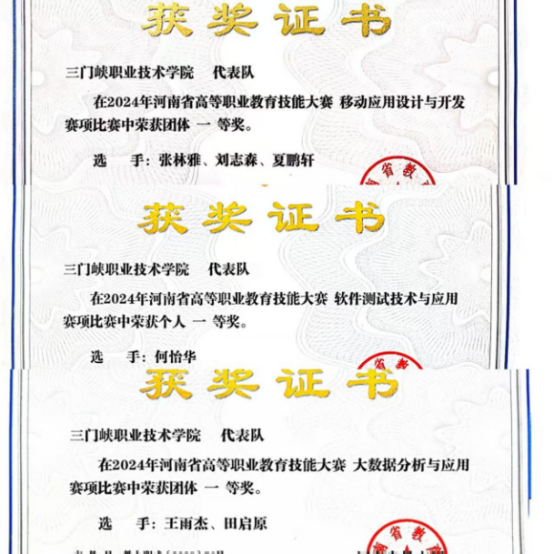 获奖证书
三门峡职业技术学院 代表队
在2024年河南省高等职业教育技能大赛 移动应用设计与开发
赛项比赛中荣获团体 一 等奖。
选 手：张林雅、刘志森、夏鹏轩
省教
获奖证书
三门峡职业技术学院 代表队
在2024年河南省高等职业教育技能大赛 软件测试技术与应用
赛项比赛中荣获个人 一 等奖。
选 手：何怡华
省教
获奖证书
三门峡职业技术学院 代表队
在2024年河南省高等职业教育技能大赛 大数据分析与应用
赛项比赛中荣获团体 一 等奖。
选 手：王雨杰、田启原
南省教育